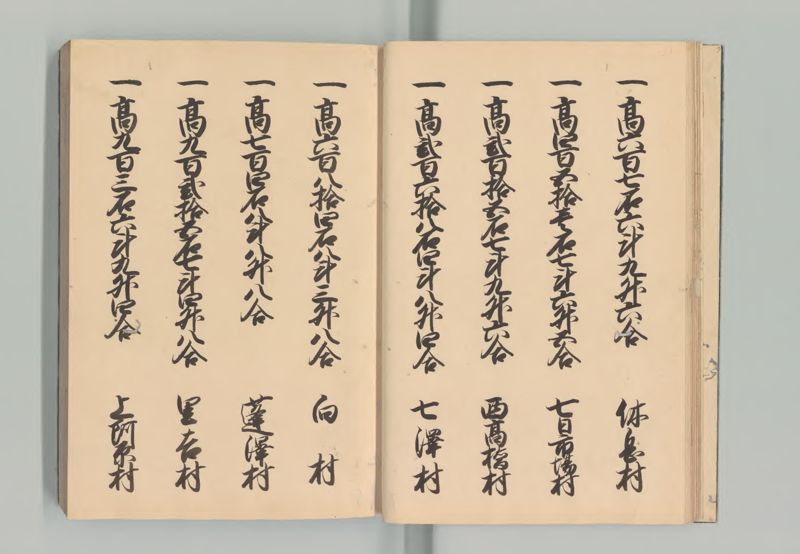 一高六百七石六斗九升六合 休息村
一高四百五拾壱石七斗六升五合 七日市場村
一高弐百拾五石七斗九升六合 西高橋村
一高弐百六拾八石四斗八升四合 七澤村
一高六百八拾四石八斗三升八合 向村
一高七百四石八斗八升八合 蓬澤村
一高九百弐拾五石七斗四升八合 里吉村
一高九百三石六斗九升四合 上阿原村